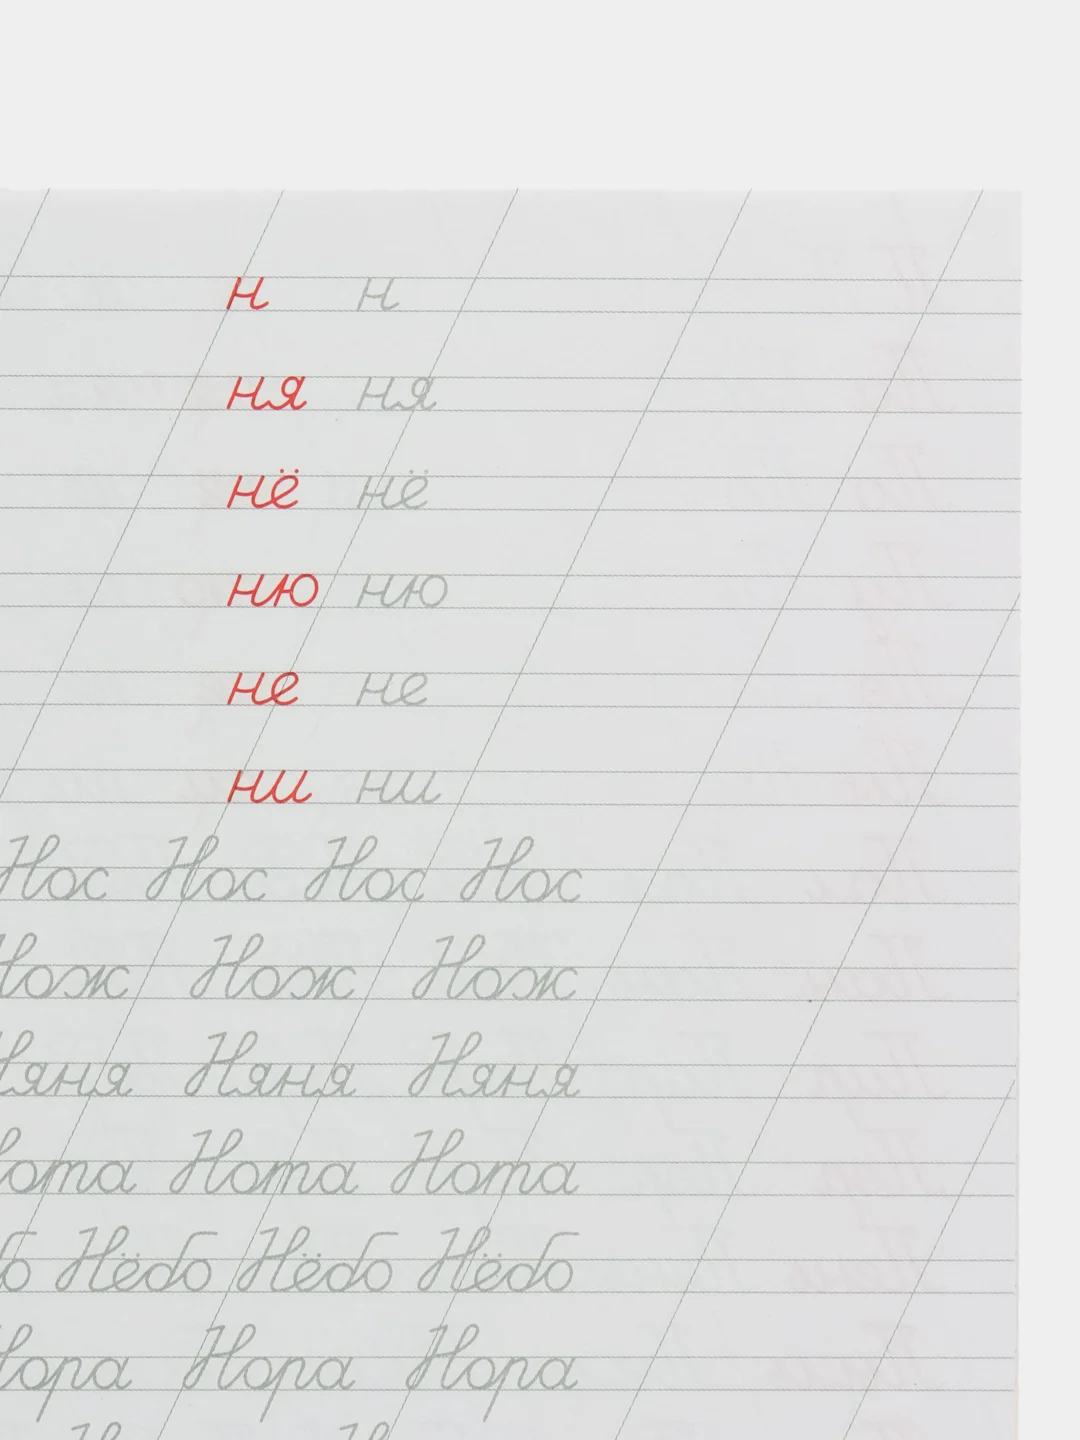 н н
ня ня
нё нё
ню ню
не не
ни ни
Нос Нос Нос Нос
Нож Нож Нож
Няня Няня Няня
Нота Нота Нота
Нёбо Нёбо Нёбо
Нора Нора Нора